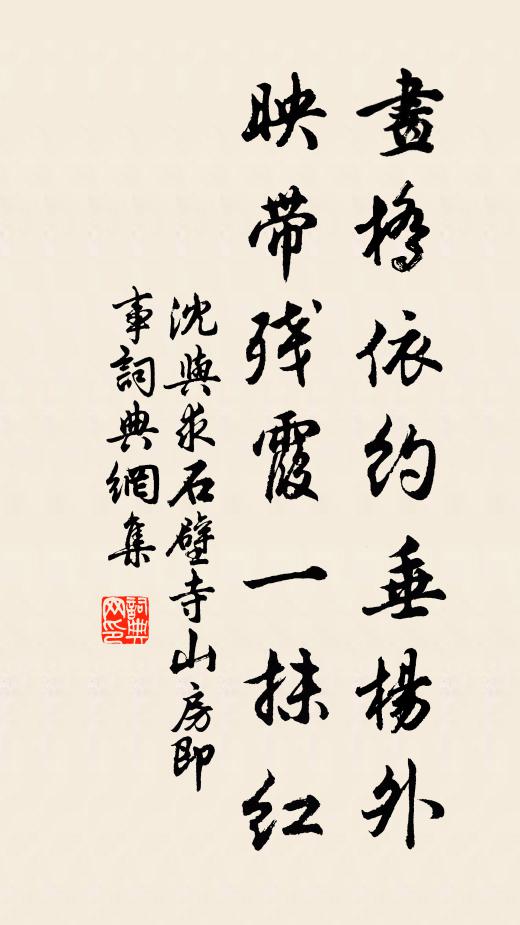 畫橋依約垂楊外
映帶残霞一抹紅
沈與求石壁寺山房即
事詞典網集
詞典
网印